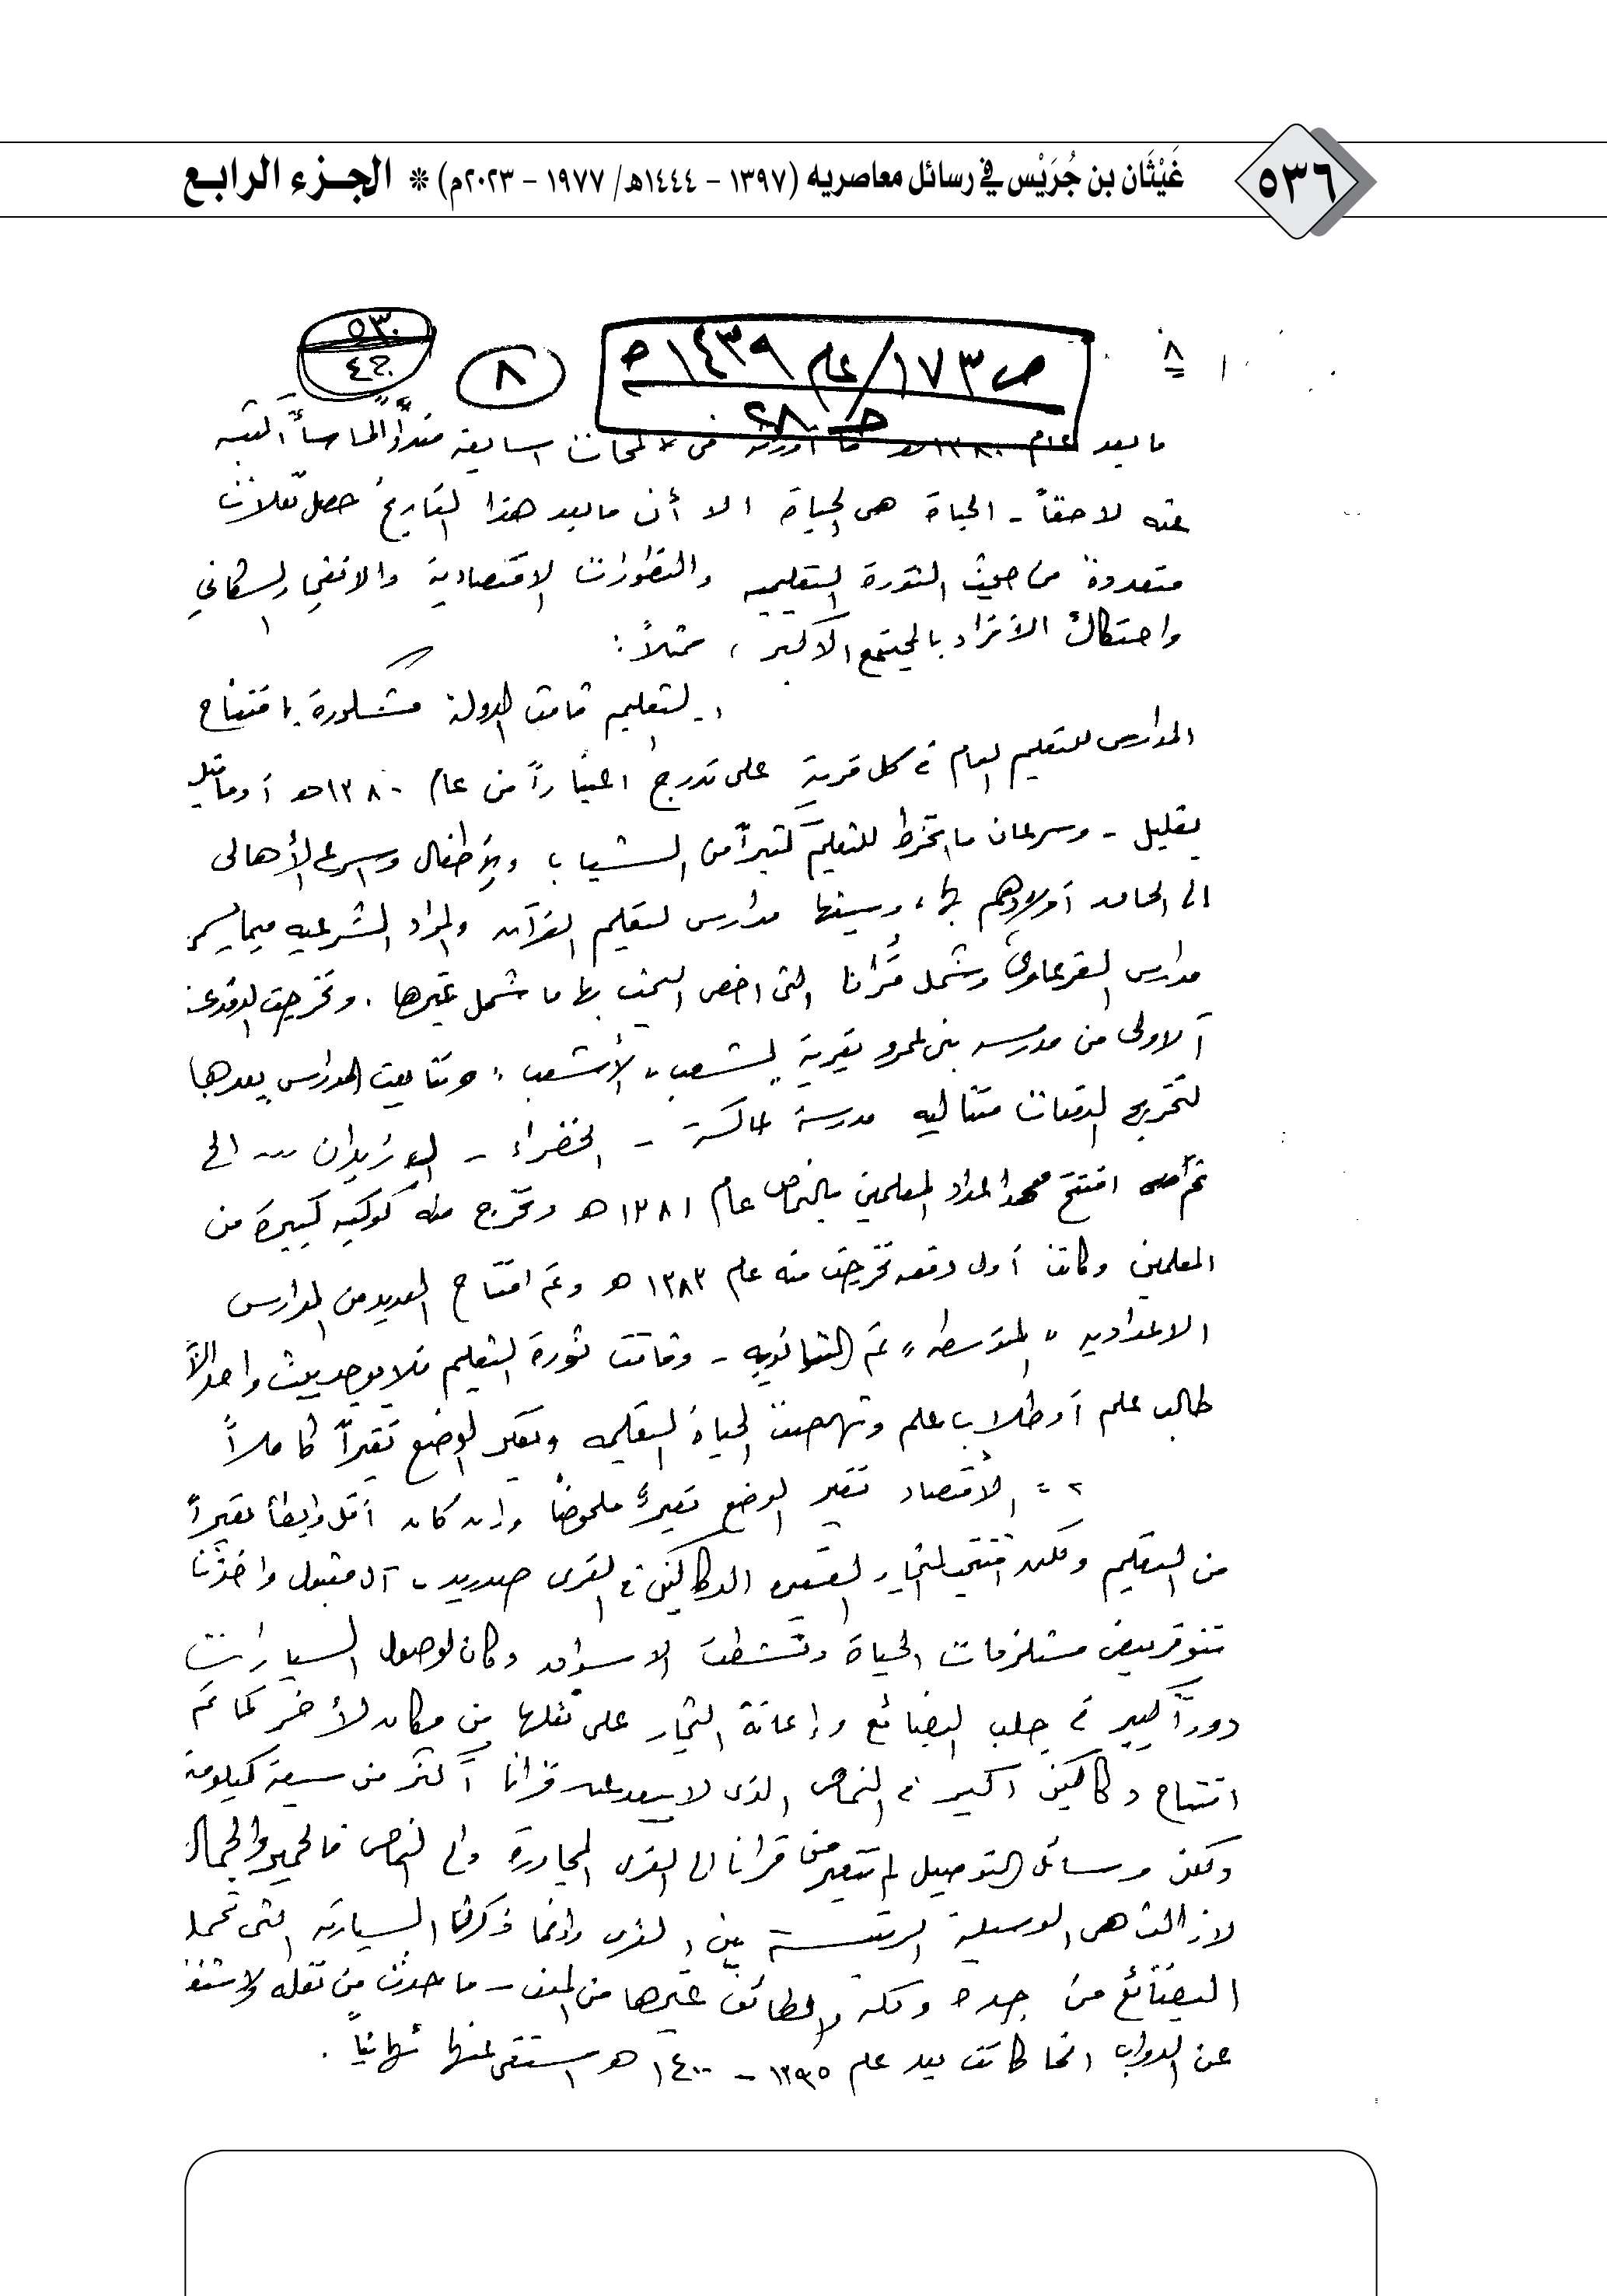 ٥٣٦
غَيْثَان بن جُرَيْس في رسائل معاصريه (١٣٩٧ - ١٤٤٤هـ/ ١٩٧٧ - ٢٠٢٣م) * الجزء الرابع
٨
٥٣٠
ج٤
٨
ص١٧٣/ عام ١٤٣٩هـ
ج٢٨
ما بعد عام ١٣٨٠هـ ما أوردته في لمحات سابقة
عنه لاحقاً - الحياة هي الحياة الا أن ما بعد هذا التاريخ حصل نقلات
متعددة من حيث الثورة التعليمية والتطورات الاقتصادية والانفجار السكاني
واحتكاك الأفراد بالمجتمع الاكبر ، فمثلاً :
١- التعليم قامت الدولة مشكورة بافتتاح
المدارس للتعليم العام في كل قرية على تدرج اعتباراً من عام ١٣٨٠هـ أو ما قبله
بقليل - وسرعان ما انخرط للتعليم كثيراً من الشباب والأطفال وسرع الأهالي
الى الحاق أولادهم بها ، وسبقها مدارس لتعليم القرآن والمواد الشرعيه فيما يسمى
مدارس القرعاوي وشمل قرانا التي اخص البحث بها ما شمل غيرها . وتخرجت الدفعة
الاولى من مدرسه بني عمرو بقرية الشعب " الأشعب " وتتابعت المدارس بعدها
لتخريج الدفعات متتاليه مدرسة عاكسة - الخضراء - ال وزيدان --- الخ
ثم افتتح معهد اعداد المعلمين بالنماص عام ١٣٨١ هـ وتخرج منه كوكبه كبيرة من
المعلمين وكانت أول دفعه تخرجت منه عام ١٣٨٣ هـ وتم افتتاح العديد من المدارس
الاعداديه " المتوسطه " ثم الثانويه - وقامت ثورة التعليم فلا يوجد بيت واحد إلا
طالب علم أو طلاب علم ونهضت الحياة التعليمه وتغير الوضع تغيراً كاملاً
٢- الاقتصاد تغير الوضع تغيراً ملحوضاً وان كان أقل وابطأ تغيراً
من التعليم ولكن افتتح التجار الدكاكين في القرى صدريد - آل مقبول واخذنا
تتوفر بعض مستلزمات الحياة ونشطت الاسواق وكان لوصول السيارات
دوراً كبير في جلب البضائع وإعانة التجار على نقلها من مكان لأخر كما تم
افتتاح دكاكين اكبر في النماص الذي لا يبعد عن قرانا أكثر من سبعة كيلومتر
ولكن وسائل التوصيل لم تتغير من قرانا الى القرى المجاورة والى النماص فالحمير والجمال
لازالت هي الوسيلة الرئيسة بين القرى وإنما ذكرنا السيارة التي تحمل
البضائع من جدة ومكة والطائف وغيرها من المدن - ما حدث من نقله ولاستغناء
عن الدواب انما كانت بعد عام ١٣٩٥ - ١٤٠٠ هـ استغني عنها نهائياً .